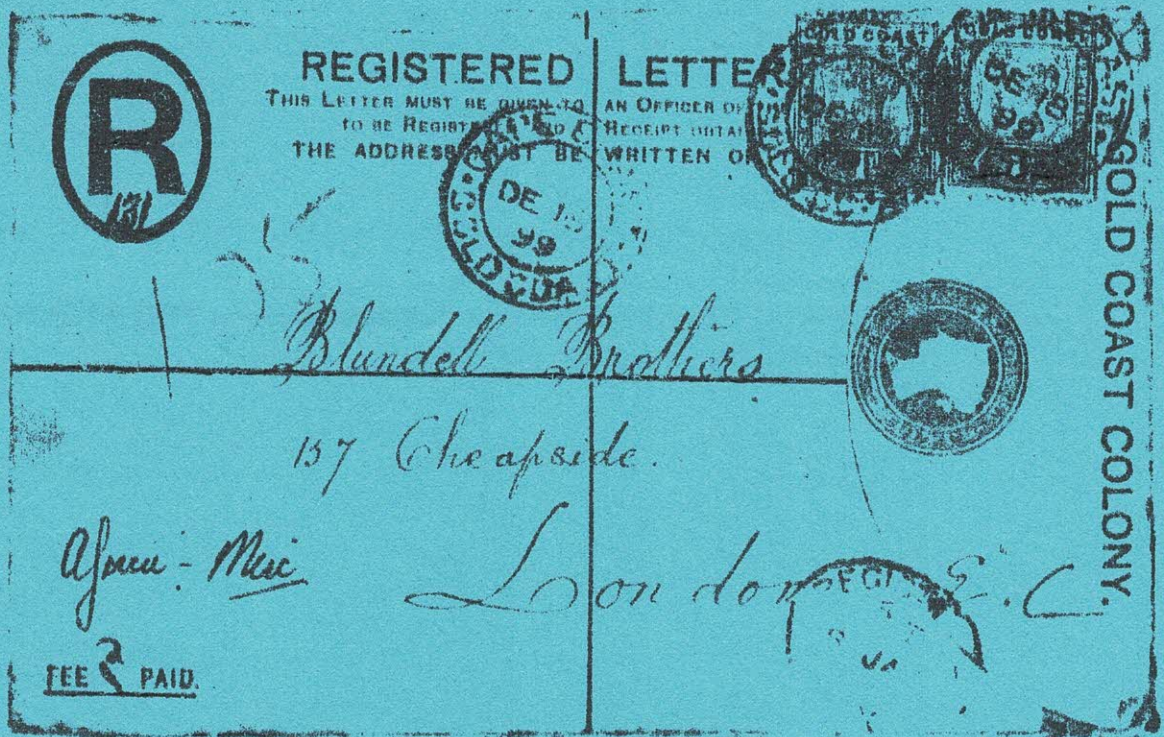 REGISTERED LETTER
THIS LETTER MUST BE GIVEN TO AN OFFICER OF
TO BE REGISTERED RECEIPT
THE ADDRESS MUST BE WRITTEN ON
R
131
GOLD COAST
GOLD COAST
DE
99
DE
99
GOLD COA
GOLD COAST COLONY.
Blundell Brothers
157 Cheapside.
London E.C.
REGI
FEE 2 PAID.